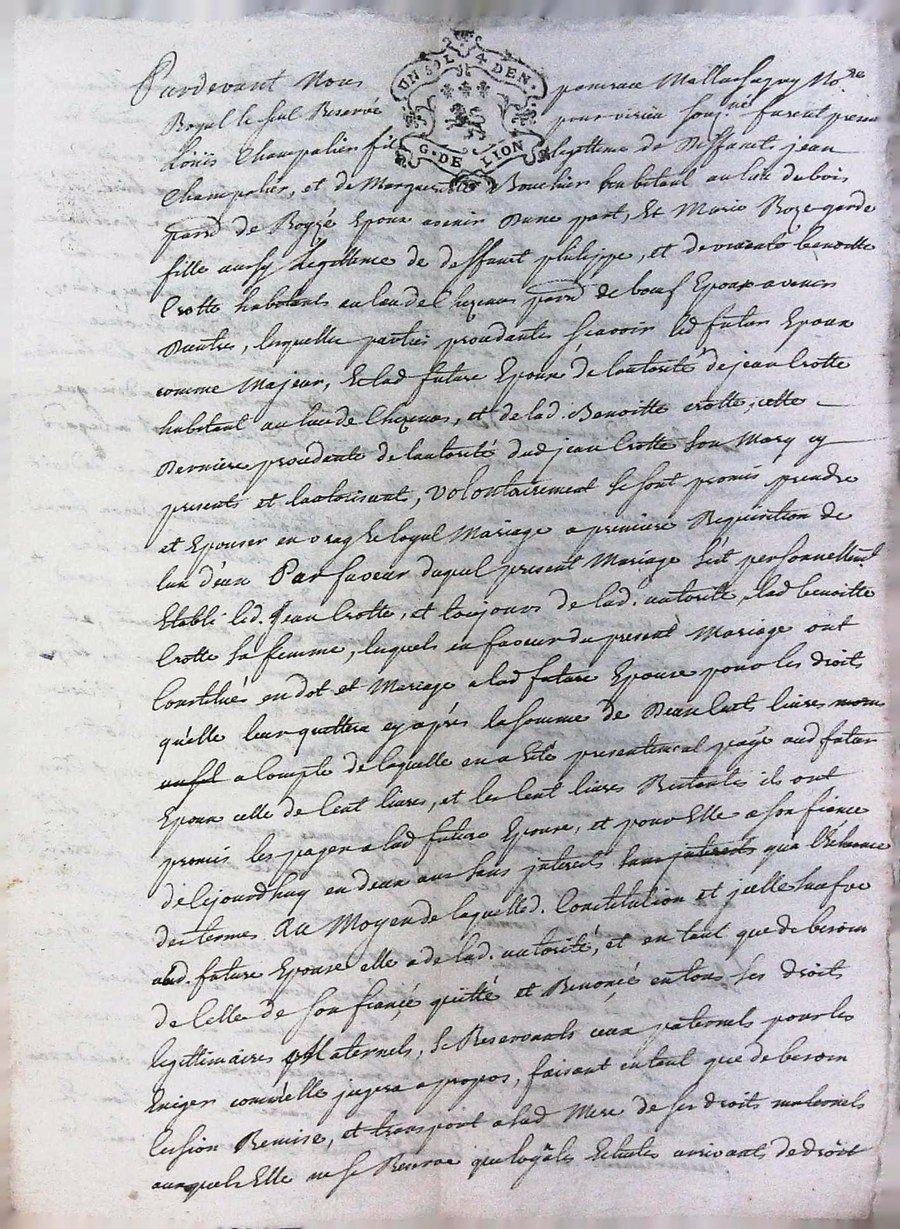 UN SOL 4 DEN.
G. DE LION
Pardevant Nous
Royal le seul Reservé pour virieu souq.né furent presens
Loüis Champalier fils legitime de Deffunct jean
Champalier, et de Marguerite Bouchier habitant au lieu de bois
parr.e de Epoux avenir Dune part, Et Marie Roze garde
fille aussy Legittime de deffunct philippe, et de vivante benoitte
Crotte habitants au lieu de parr.e de bœuf Epouse avenir
Dautre, lesquelles parties procedantes scavoir led futur Epoux
comme Majeur, Et lad future Epouse de lautorité de jean Crotte
habitant au lieu de et de lad. Benoitte crotte, cette
Derniere procedante de lautorité dud jean Crotte son Mary cy
presents et lautorisant, volontairement se sont promis prendre
et Epouser en vray et loyal Mariage a premiere Requisition de
lun deux Par faveur duquel present Mariage s'est personnellem.t
Etabli led. jean Crotte, et toujours de lad. autorité, lad benoitte
Crotte sa femme, lesquels en faveur du present Mariage ont
Constitués en dot et Mariage a lad future Epouse pour les droits
qu'elle leur quittera cy après la somme de Deux cents livres
a Compte de laquelle en a Eté presentement payé aud futur
Epoux celle de Cent livres, et les Cent livres Restantes ils ont
promis les payer a lad future Epouse, et pour Elle a son fiancé
de cejourdhuy en deux ans sans jnterets sans jnterets qua l'Echeance
des termes Au Moyen de laquelle d. Constitution et jcelle sauf
aud. future Epouse elle a de lad. autorité, et en tant que de besoin
de Celle de son fiancé quitté et Renoncé en tous ses droits
legittimaires Maternels, se Reservants ceux paternels pour les
Exiger comm'elle jugera apropos, faisant en tant que de besoin
Cession Remise, et transport a lad Mere de ses droits maternels
auxquels Elle ne se Reserve que loyales Echutes arrivants de droit